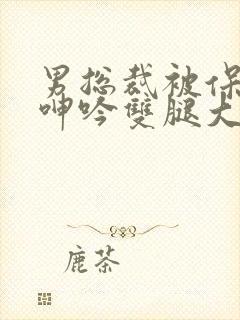 男总裁被保
呻吟雙腿大
鹿茶